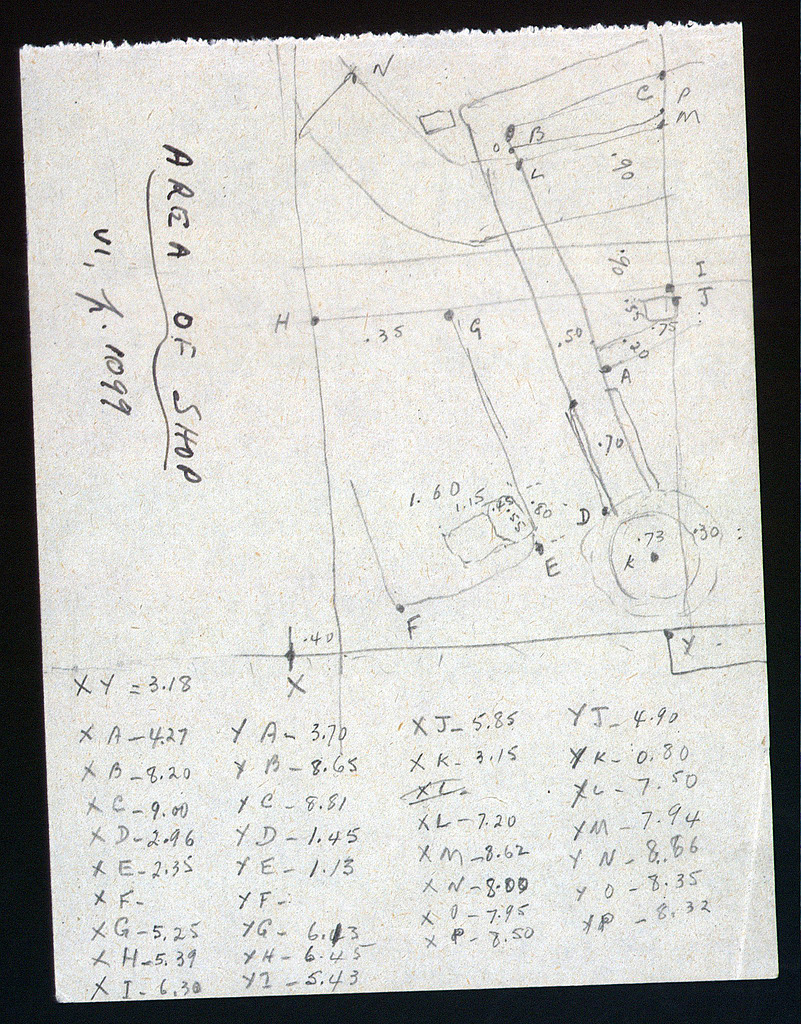 N
C
P
M
B
O
L
.90
.90
I
J
H
.35
G
.50
.75
.20
A
.70
1.60
1.15
.55
.80
D
E
.73
.30
K
F
.40
X
Y
AREA OF SHOP
VI, p. 1099
XY = 3.18
XA - 4.27 YA - 3.70
XB - 8.20 YB - 8.65
XC - 9.00 YC - 8.81
XD - 2.96 YD - 1.45
XE - 2.35 YE - 1.13
XF - YF -
XG - 5.25 YG - 6.13
XH - 5.39 YH - 6.45
XI - 6.30 YI - 5.43
XJ - 5.85 YJ - 4.90
XK - 3.15 YK - 0.80
XL - 7.20 YL - 7.50
XM - 8.62 YM - 7.94
XN - 8.00 YN - 8.86
XO - 7.95 YO - 8.35
XP - 8.50 YP - 8.32